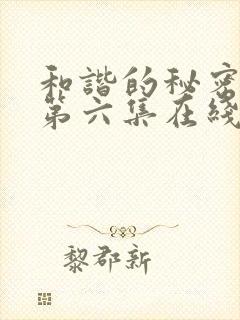 和谐的秘密
第六集在线
黎郡新